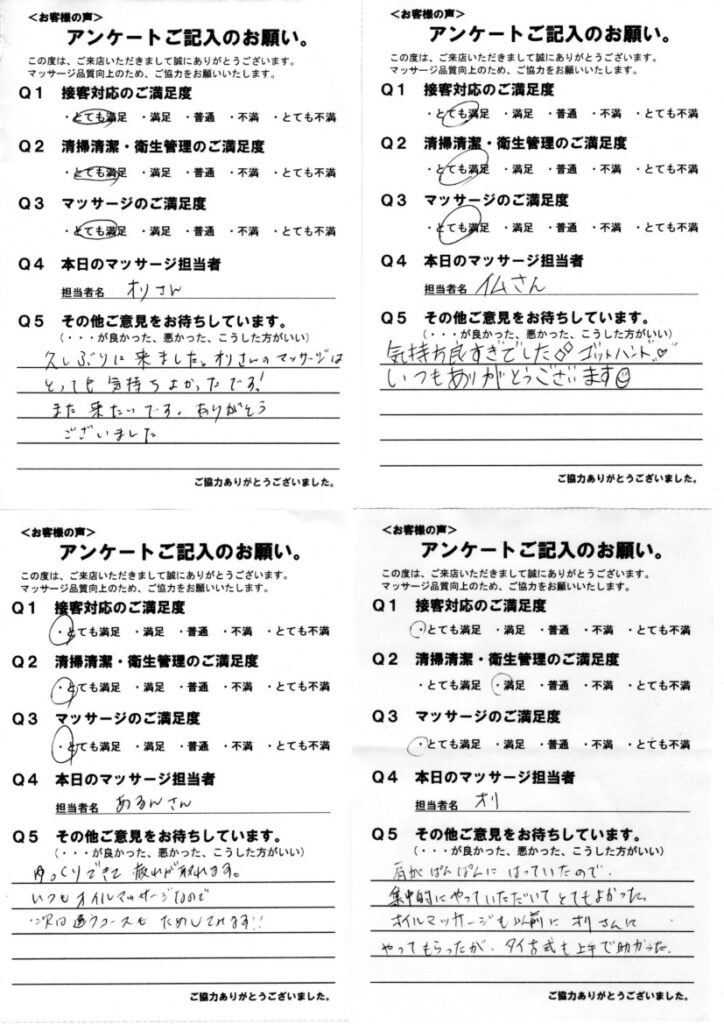 ＜お客様の声＞
アンケートご記入のお願い。
この度は、ご来店いただきまして誠にありがとうございます。
マッサージ品質向上のため、ご協力をお願いいたします。
Q１ 接客対応のご満足度
・とても満足 ・満足 ・普通 ・不満 ・とても不満
Q２ 清掃清潔・衛生管理のご満足度
・とても満足 ・満足 ・普通 ・不満 ・とても不満
Q３ マッサージのご満足度
・とても満足 ・満足 ・普通 ・不満 ・とても不満
Q４ 本日のマッサージ担当者
担当者名 オリさん
Q５ その他ご意見をお待ちしています。
（・・・が良かった、悪かった、こうした方がいい）
久しぶりに来ました。オリさんのマッサージは
とっても気持ちよかったです！
また来たいです。ありがとう
ございました
ご協力ありがとうございました。
＜お客様の声＞
アンケートご記入のお願い。
この度は、ご来店いただきまして誠にありがとうございます。
マッサージ品質向上のため、ご協力をお願いいたします。
Q１ 接客対応のご満足度
・とても満足 ・満足 ・普通 ・不満 ・とても不満
Q２ 清掃清潔・衛生管理のご満足度
・とても満足 ・満足 ・普通 ・不満 ・とても不満
Q３ マッサージのご満足度
・とても満足 ・満足 ・普通 ・不満 ・とても不満
Q４ 本日のマッサージ担当者
担当者名 仏さん
Q５ その他ご意見をお待ちしています。
（・・・が良かった、悪かった、こうした方がいい）
気持ち良すぎでした ゴットハンド♡
いつもありがとうございます☺
ご協力ありがとうございました。
＜お客様の声＞
アンケートご記入のお願い。
この度は、ご来店いただきまして誠にありがとうございます。
マッサージ品質向上のため、ご協力をお願いいたします。
Q１ 接客対応のご満足度
・とても満足 ・満足 ・普通 ・不満 ・とても不満
Q２ 清掃清潔・衛生管理のご満足度
・とても満足 ・満足 ・普通 ・不満 ・とても不満
Q３ マッサージのご満足度
・とても満足 ・満足 ・普通 ・不満 ・とても不満
Q４ 本日のマッサージ担当者
担当者名 あるんさん
Q５ その他ご意見をお待ちしています。
（・・・が良かった、悪かった、こうした方がいい）
ゆっくりできて 疲れが取れます。
いつもオイルマッサージなので
次回違うコースも ためしてみます!!
ご協力ありがとうございました。
＜お客様の声＞
アンケートご記入のお願い。
この度は、ご来店いただきまして誠にありがとうございます。
マッサージ品質向上のため、ご協力をお願いいたします。
Q１ 接客対応のご満足度
・とても満足 ・満足 ・普通 ・不満 ・とても不満
Q２ 清掃清潔・衛生管理のご満足度
・とても満足 ・満足 ・普通 ・不満 ・とても不満
Q３ マッサージのご満足度
・とても満足 ・満足 ・普通 ・不満 ・とても不満
Q４ 本日のマッサージ担当者
担当者名 オリ
Q５ その他ご意見をお待ちしています。
（・・・が良かった、悪かった、こうした方がいい）
肩がぱんぱんにはっていたので、
集中的にやっていただいてとてもよかった。
オイルマッサージも以前にオリさんに
やってもらったが、タイ古式も上手で助かった。
ご協力ありがとうございました。